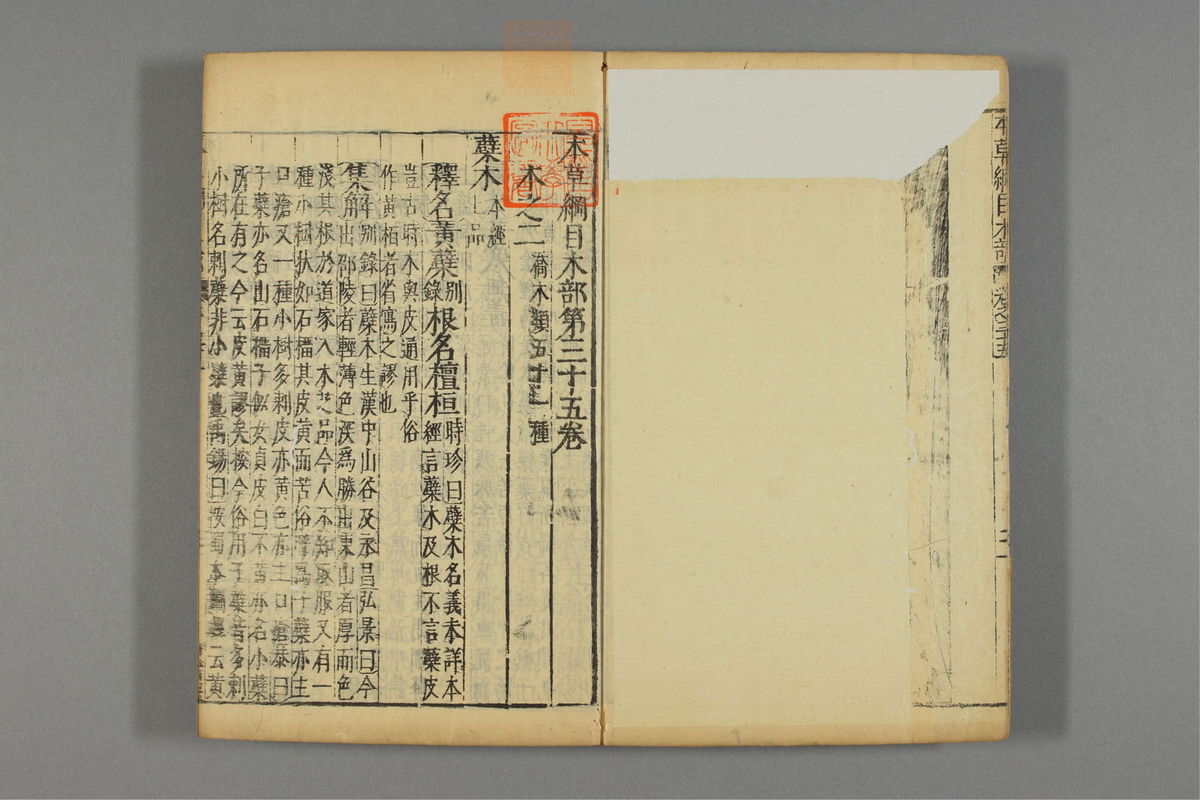 本草綱目木部第三十五卷
木之二 喬木類五十二種
蘗木 本經上品
釋名黃蘗別錄根名檀桓時珍曰蘗木名義未詳本經言蘗木及根不言蘗皮
豈古時木與皮通用乎俗
作黃栢者省寫之謬也
集解別錄曰蘗木生漢中山谷及永昌弘景曰今
出邵陵者輕薄色深爲勝出東山者厚而色
淺其根於道家入木芝品今人不知取服又有一
種小樹狀如石榴其皮黃而苦俗呼爲子蘗亦主
口瘡又一種小樹多刺皮亦黃色亦主口瘡恭曰
子蘗亦名山石榴子似女貞皮白不黃亦名小蘗
所在有之今云皮黃謬矣按今俗用子蘗皆多刺
小樹名刺蘗非小蘗也禹錫曰按蜀本圖經云黃